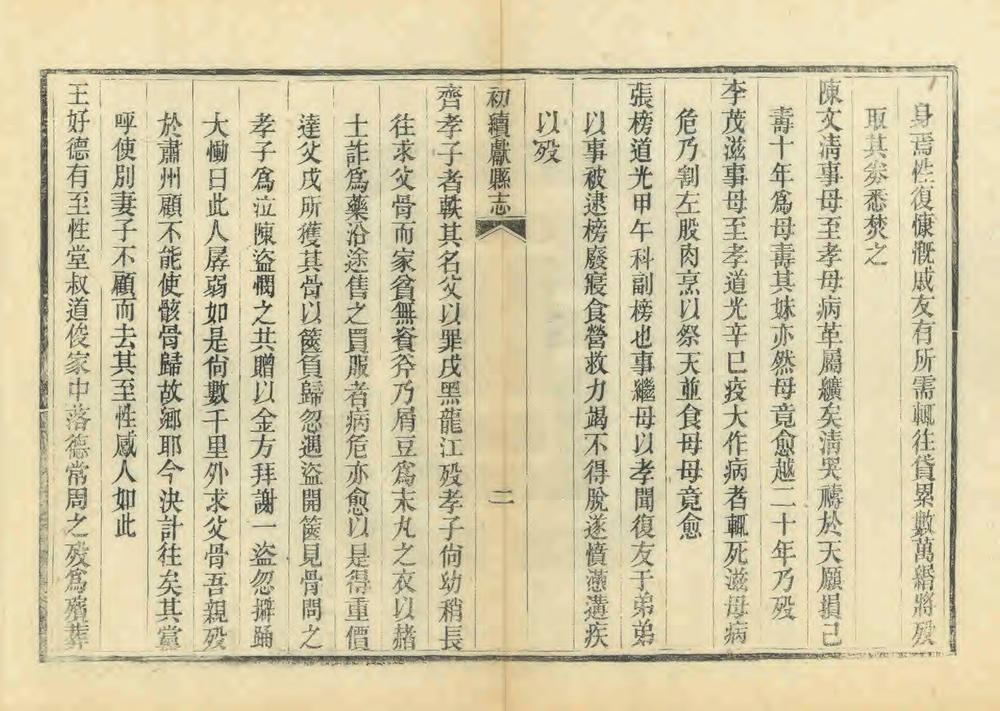 身焉性復慷慨戚友有所需輒往貸累數萬緡將歿
取其券悉焚之
陳文淸事母至孝母病革屬纊矣淸哭禱於天願損己
壽十年爲母壽其妹亦然母竟愈越二十年乃歿
李茂滋事母至孝道光辛巳疫大作病者輒死滋母病
危乃割左股肉烹以祭天並食母母竟愈
張榜道光甲午科副榜也事繼母以孝聞復友于弟弟
以事被逮榜廢寢食營救力竭不得脫遂憤懣遘疾
以歿
初續獻縣志
二
齊孝子者軼其名父以罪戍黑龍江歿孝子尙幼稍長
往求父骨而家貧無資斧乃屑豆爲末丸之衣以赭
土詐爲藥沿途售之買服者病危亦愈以是得重價
達父戍所獲其骨以篋負歸忽遇盜開篋見骨問之
孝子爲泣陳盜憫之共贈以金方拜謝一盜忽擗踊
大慟曰此人孱弱如是尙數千里外求父骨吾親歿
於肅州顧不能使骸骨歸故鄕耶今決計往矣其黨
呼使別妻子不顧而去其至性感人如此
王好德有至性堂叔道俊家中落德常周之歿爲殯葬